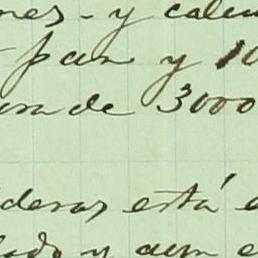 nes - y calen
pan y 10
ura de 3000
deras está e
lado y aun e